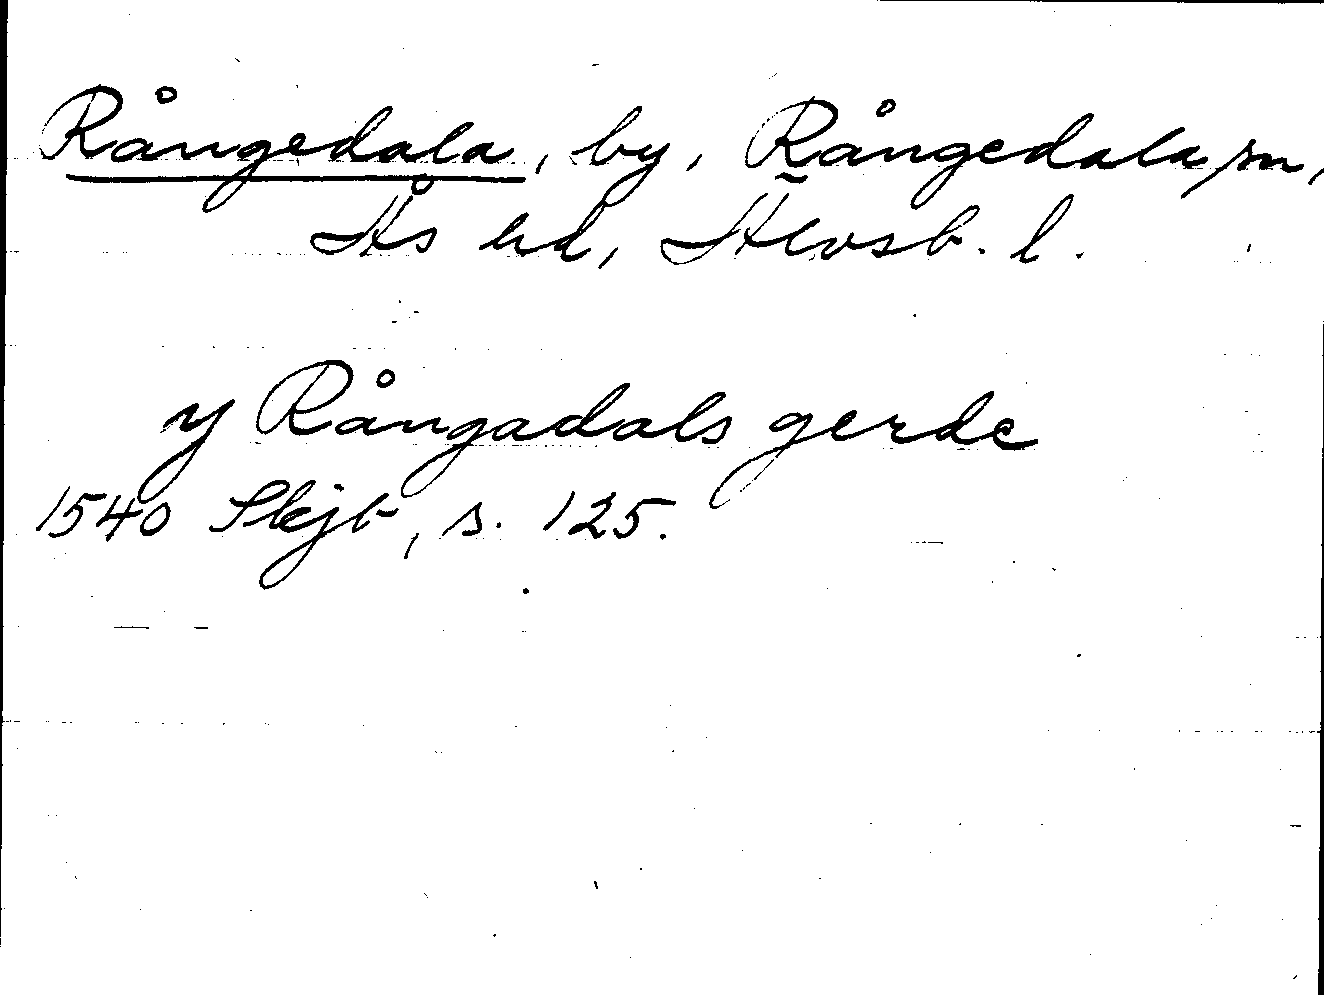 Rångedala, by, Rångedala sn,
Ås hd, Älvsb. l.
y Rångadals gerde
1540 Skjb, s. 125.